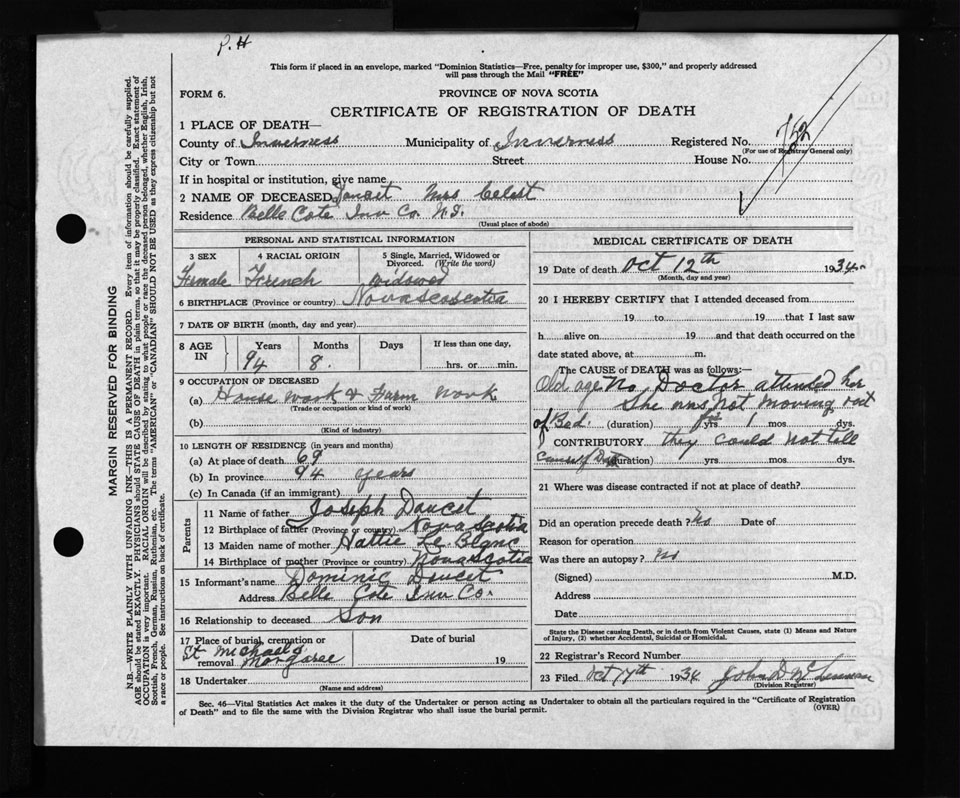 P. H
This form if placed in an envelope, marked "Dominion Statistics—Free, penalty for improper use, $300," and properly addressed
will pass through the Mail "FREE"
FORM 6.
PROVINCE OF NOVA SCOTIA
CERTIFICATE OF REGISTRATION OF DEATH
1 PLACE OF DEATH—
County of Inverness Municipality of Inverness Registered No. 752
(For use of Registrar General only)
City or Town Street House No.
If in hospital or institution, give name
2 NAME OF DECEASED Doucet Mrs Celest
Residence Belle Cote Inv Co. N.S.
(Usual place of abode)
PERSONAL AND STATISTICAL INFORMATION
3 SEX 4 RACIAL ORIGIN 5 Single, Married, Widowed or Divorced. (Write the word)
Female French widowed
6 BIRTHPLACE (Province or country) Novascoscotia
7 DATE OF BIRTH (month, day and year)
8 AGE IN Years Months Days If less than one day,
94 8. hrs. or min.
9 OCCUPATION OF DECEASED
(a) House work & Farm work
(Trade or occupation or kind of work)
(b)
(Kind of industry)
10 LENGTH OF RESIDENCE (in years and months)
(a) At place of death 69
(b) In province 94 years
(c) In Canada (if an immigrant)
Parents
11 Name of father Joseph Doucet
12 Birthplace of father (Province or country) Nova Scotia
13 Maiden name of mother Hattie Le Blanc
14 Birthplace of mother (Province or country) Novascotia
15 Informant's name Dominic Doucet
Address Belle Cote Inv Co.
16 Relationship to deceased Son
17 Place of burial, cremation or removal Date of burial
St Michaels Margaree 19
18 Undertaker
(Name and address)
MEDICAL CERTIFICATE OF DEATH
19 Date of death Oct 12th 1934
(Month, day and year)
20 I HEREBY CERTIFY that I attended deceased from
19 to 19 that I last saw
h alive on 19 and that death occurred on the
date stated above, at m.
The CAUSE of DEATH was as follows:—
Old age No Doctor attended her
She was not moving out
of Bed. (duration) yrs mos dys.
CONTRIBUTORY they could not tell
cause of (duration) yrs mos dys.
21 Where was disease contracted if not at place of death?
Did an operation precede death? No Date of
Reason for operation
Was there an autopsy? No
(Signed) M.D.
Address
Date
State the Disease causing Death, or in death from Violent Causes, state (1) Means and Nature
of Injury, (2) whether Accidental, Suicidal or Homicidal.
22 Registrar's Record Number
23 Filed Oct 17th 1934 John D
(Division Registrar)
Sec. 46—Vital Statistics Act makes it the duty of the Undertaker or person acting as Undertaker to obtain all the particulars required in the "Certificate of Registration
of Death" and to file the same with the Division Registrar who shall issue the burial permit.
(OVER)
MARGIN RESERVED FOR BINDING
N.B.—WRITE PLAINLY WITH UNFADING INK—THIS IS A PERMANENT RECORD. Every item of information should be carefully supplied.
AGE should be stated EXACTLY. PHYSICIANS should STATE CAUSE OF DEATH in plain terms, so that it may be properly classified. Exact statement of
OCCUPATION is very important. RACIAL ORIGIN will be described by stating to what people or race the deceased person belonged, whether English, Irish,
Scottish, French, German, Russian, Ruthenian, etc. The terms "AMERICAN" or "CANADIAN" SHOULD NOT BE USED as they express citizenship but not
a race or people. See instructions on back of certificate.